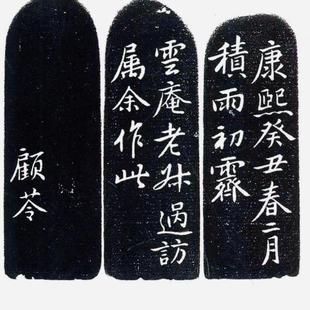 康熙癸丑春二月
積雨初霽
雲庵老㳄過訪
属余作此
顧苓